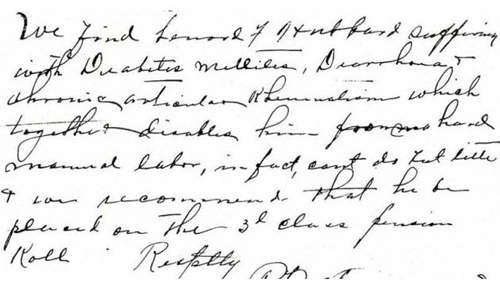 We find Leonard F Hubbard suffering
with Diabetes Mellites, Diarrhoea &
chronic articular Rheumatism which
together disables him from hard
manual labor, in fact, cant do but little
& we recommend that he be
placed on the 3d class pension
Roll Respttly